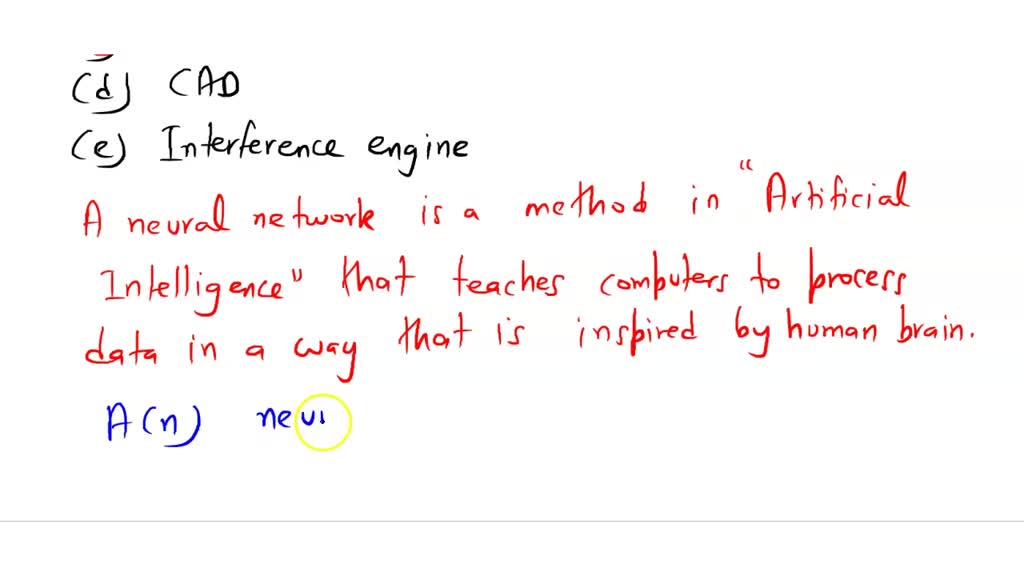 (d) CAD
(e) Interference engine
A neural network is a method in "Artificial
Intelligence" that teaches computers to process
data in a way that is inspired by human brain.
A(n) neu